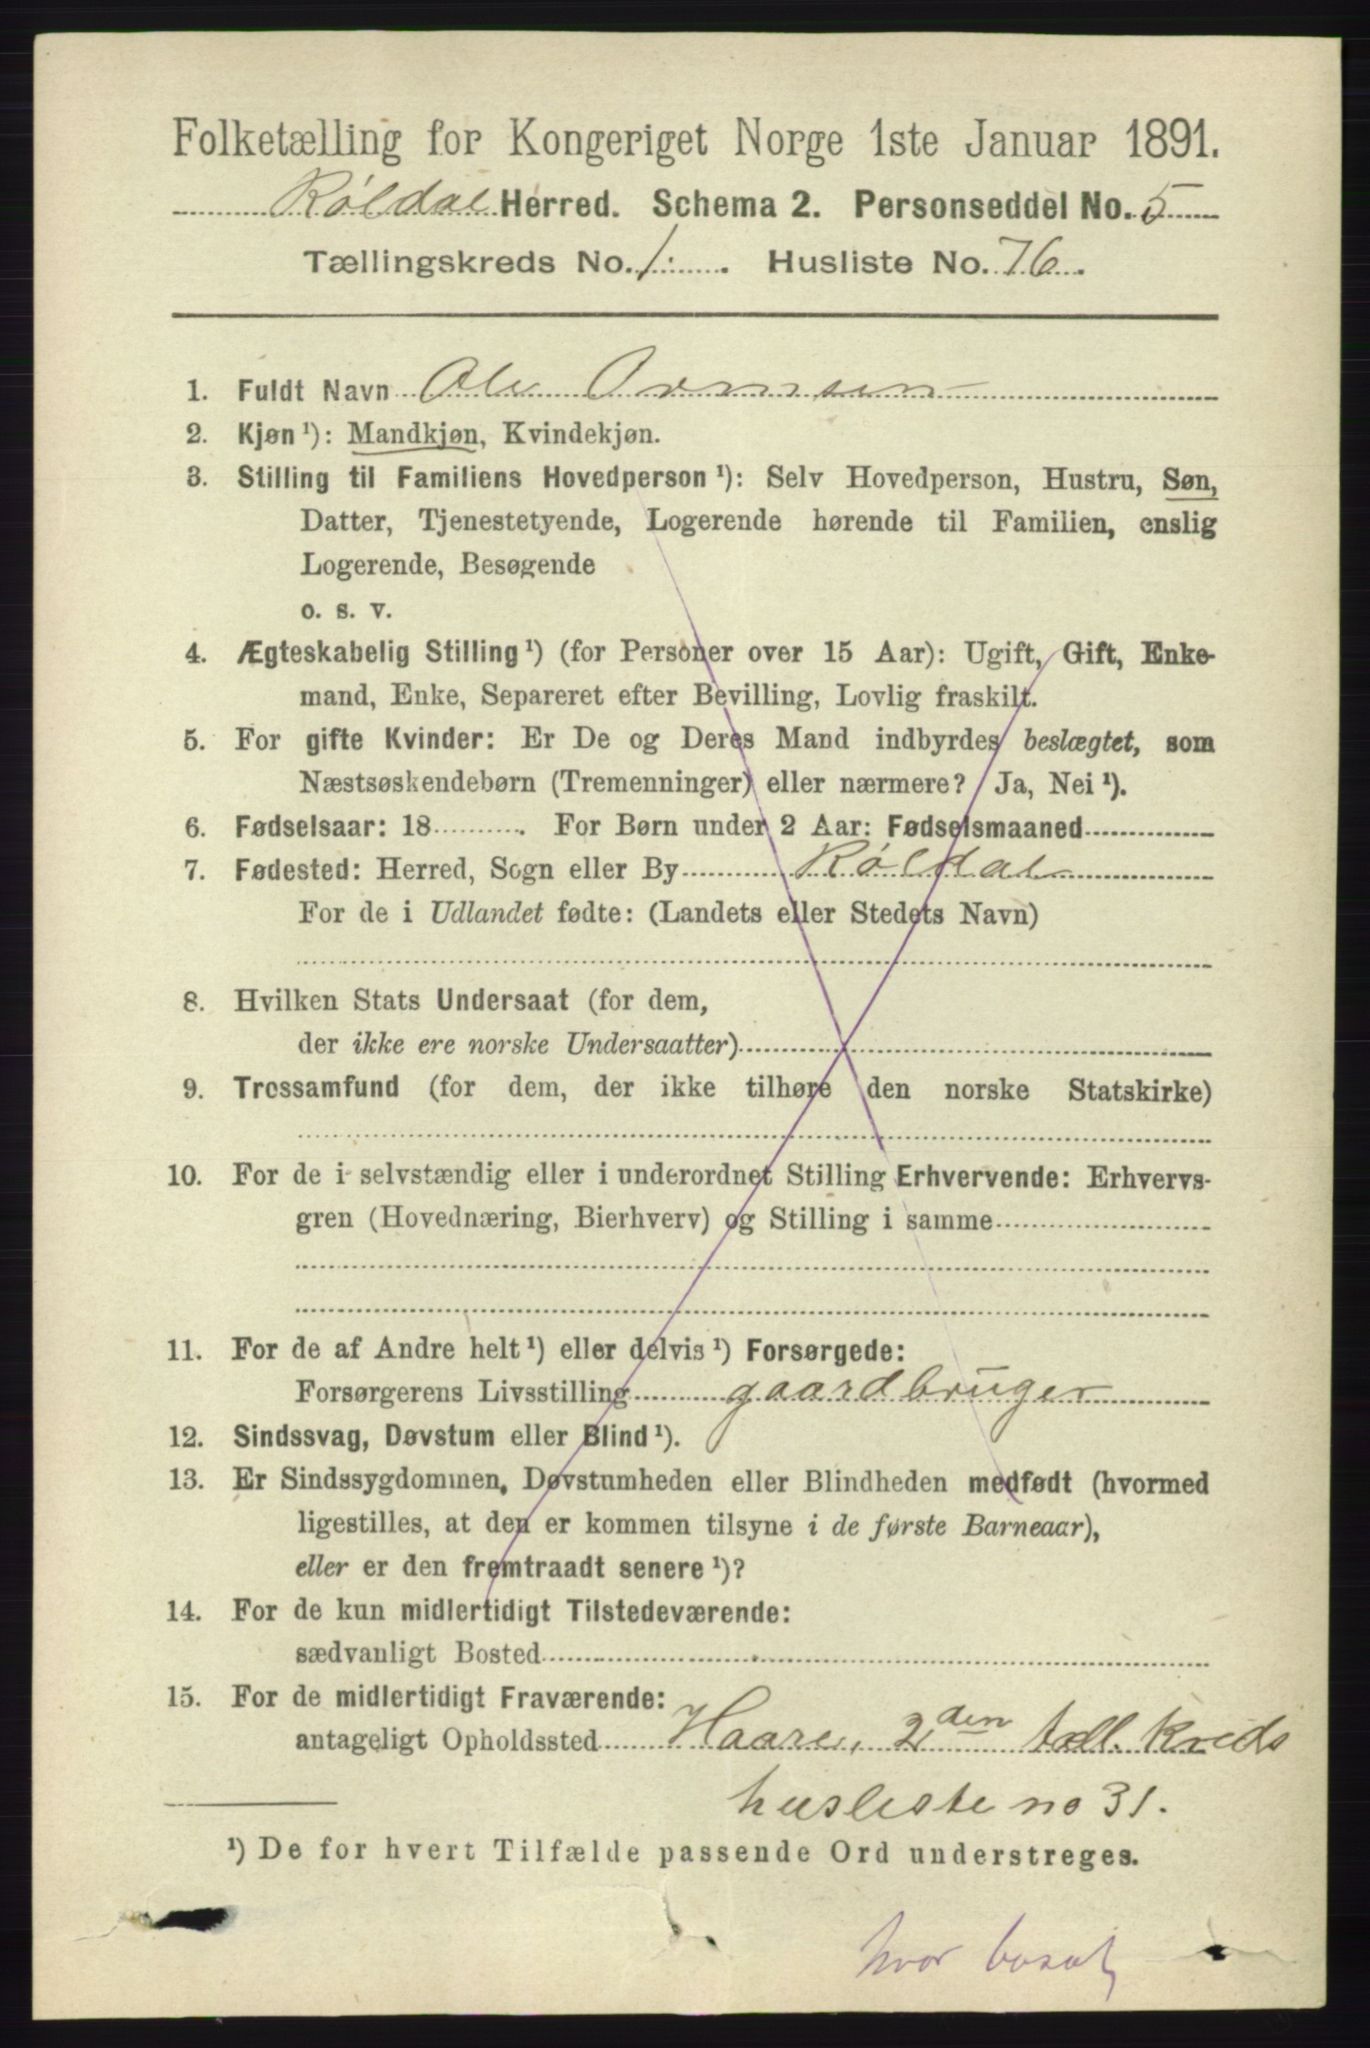 Folketælling for Kongeriget Norge 1ste Januar 1891.
Røldal Herred. Schema 2. Personseddel No. 5
Tællingskreds No. 1. Husliste No. 76.
1. Fuldt Navn Ole Ormsen
2. Kjøn ¹): Mandkjøn, Kvindekjøn.
3. Stilling til Familiens Hovedperson ¹): Selv Hovedperson, Hustru, Søn,
Datter, Tjenestetyende, Logerende hørende til Familien, enslig
Logerende, Besøgende
o. s. v.
4. Ægteskabelig Stilling ¹) (for Personer over 15 Aar): Ugift, Gift, Enke-
mand, Enke, Separeret efter Bevilling, Lovlig fraskilt.
5. For gifte Kvinder: Er De og Deres Mand indbyrdes beslægtet, som
Næstsøskendebørn (Tremenninger) eller nærmere? Ja, Nei ¹).
6. Fødselsaar: 18 . For Børn under 2 Aar: Fødselsmaaned
7. Fødested: Herred, Sogn eller By Røldal
For de i Udlandet fødte: (Landets eller Stedets Navn)
8. Hvilken Stats Undersaat (for dem,
der ikke ere norske Undersaatter)
9. Trossamfund (for dem, der ikke tilhøre den norske Statskirke)
10. For de i selvstændig eller i underordnet Stilling Erhvervende: Erhvervs-
gren (Hovednæring, Bierhverv) og Stilling i samme
11. For de af Andre helt ¹) eller delvis ¹) Forsørgede:
Forsørgerens Livsstilling gaardbruger
12. Sindssvag, Døvstum eller Blind ¹).
13. Er Sindssygdommen, Døvstumheden eller Blindheden medfødt (hvormed
ligestilles, at den er kommen tilsyne i de første Barneaar),
eller er den fremtraadt senere ¹)?
14. For de kun midlertidigt Tilstedeværende:
sædvanligt Bosted
15. For de midlertidigt Fraværende:
antageligt Opholdssted Haare, 2den tæll. Kreds
husliste no 31.
¹) De for hvert Tilfælde passende Ord understreges.
hvor bosat